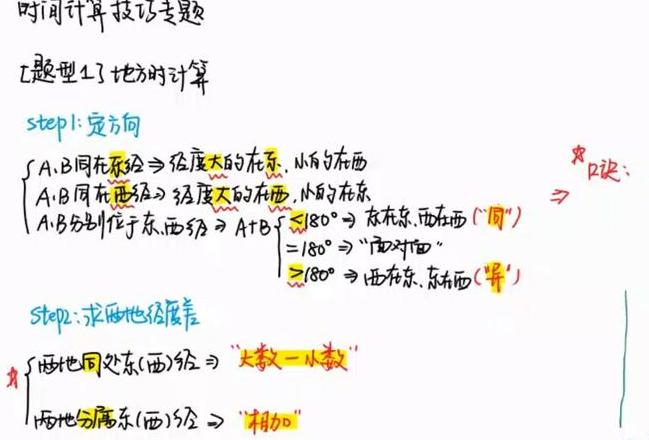 时间计算技巧专题
[题型1]地方时计算
step1:定方向
A、B同在东经⇒经度大的在东,小的在西
A、B同在西经⇒经度大的在西,小的在东
A、B分别位于东、西经⇒A+B
<180°⇒东在东、西在西("同")
=180°⇒"面对面"
>180°⇒西在东、东在西("异")
⇒
☆口诀:
step2:求两地经度差
☆
两地同处东(西)经⇒"大数-小数"
两地分属东(西)经⇒"相加"